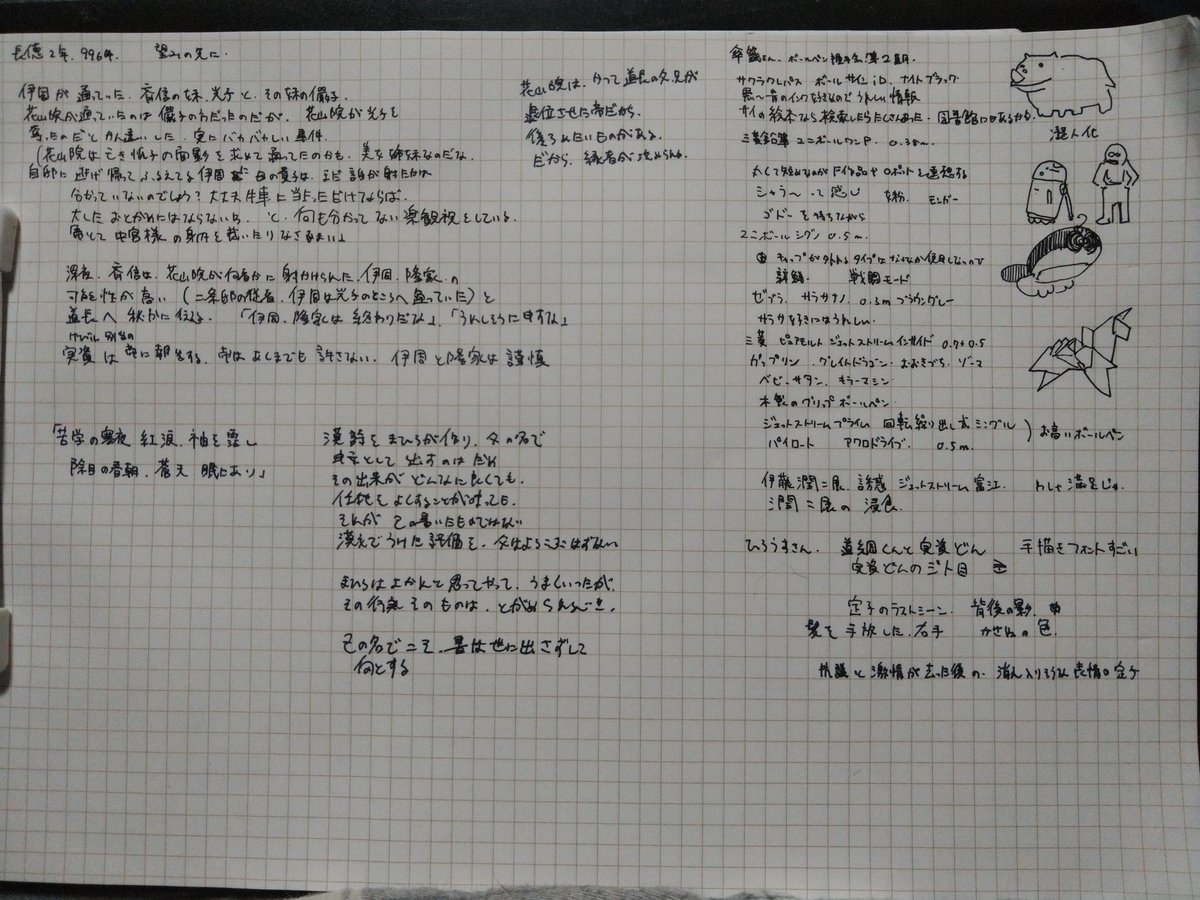 長徳2年. 996年. 望みの先に.
伊周が通っていた. 斉信の妹. 光子と. その妹の儼子.
花山院が通っていたのは儼子のみだったのだが. 花山院が光子を
奪ったのだとかん違いした. 実にバカバカしい事件.
(花山院は亡き忯子の面影を求めて通ってたのかも. 美な姉妹なのだな.
自邸に逃げ帰って. ふるえてる伊周 母の貴子は. まだ誰が射たかは
分かっていないのでしょう? 大丈夫 牛車に当たっただけならば.
大したおとがめにはならないわ. と. 何も分かってない楽観視をしている.
帝とて中宮様の身内を裁いたりなさるまい」
花山院は. かつて道長の父兄が
退位させた帝だから.
後ろめたいものがある.
だから. 縁者が攻められる.
深夜. 斉信は. 花山院が何者かに射かけられた. 伊周. 隆家の
可能性が高い (二条邸の従者. 伊周は光子のところへ参っていた) と
道長へ秘かに伝える. 「伊周. 隆家は終わりだな」. 「うれしそうに申すな」
けびいし別当の
実資は帝に報告する. 帝はあくまでも許さない. 伊周と隆家は謹慎
「苦学の寒夜 紅涙. 袖を霑し
除目の春朝. 蒼天 眼にあり」
漢詩をまひろが作り. 父の名で
申文として出すのはだめ
その出来がどんなに良くても.
任地をよくすることが叶っても.
それが 己の書いたものではない
漢文でうけた評価を. 父はよろこぶはずない
まひろはよかれと思ってやって. うまくいったが.
その行為そのものは. とがめられるべき.
己の名でこそ. 書は世に出さずして
何とする
傘籤さん. ボールペン博士会 第2期.
サクラクレパス ボールサイン iD. ナイトブラック
黒〜青のインクなのでうれしい情報
サイの絵本なら検索したらたくさんあった. 図書館にもあるかも.
擬人化
三菱鉛筆 ユニボールワンP. 0.38m.
丸くて短めなのがドイツ品やロボットを連想する
シャラ〜って感じ
ゴドーを待ちながら
ユニボール シグノ 0.5m.
キャップが外れるタイプは
戦闘モード
ゼブラ. サラサナノ. 0.3m ブラウングレー
サラサ好きにはうれしい.
三菱 ピュアモルト ジェットストリームインサイド 0.7+0.5
ガップリン. グレイトドラゴン. おおきづち. ゾーマ
ベビーサタン. キラーマシン
木製のグリップボールペン
ジェットストリームプライム 回転繰り出し式シングル
パイロット アクロドライブ. 0.5m.
お高いボールペン
伊藤潤二展. 誘惑 ジェットストリーム富江. わしゃ満足じゃ.
潤二展の 浸食.
ひろうすさん. 道綱くんと実資どん 手描きフォントすごい
実資どんのジト目
定子のラストシーン. 背後の影.
髪を手放した. 右手 かさねの色.
抗議と激情が去った後の. 消え入りそうな表情の定子